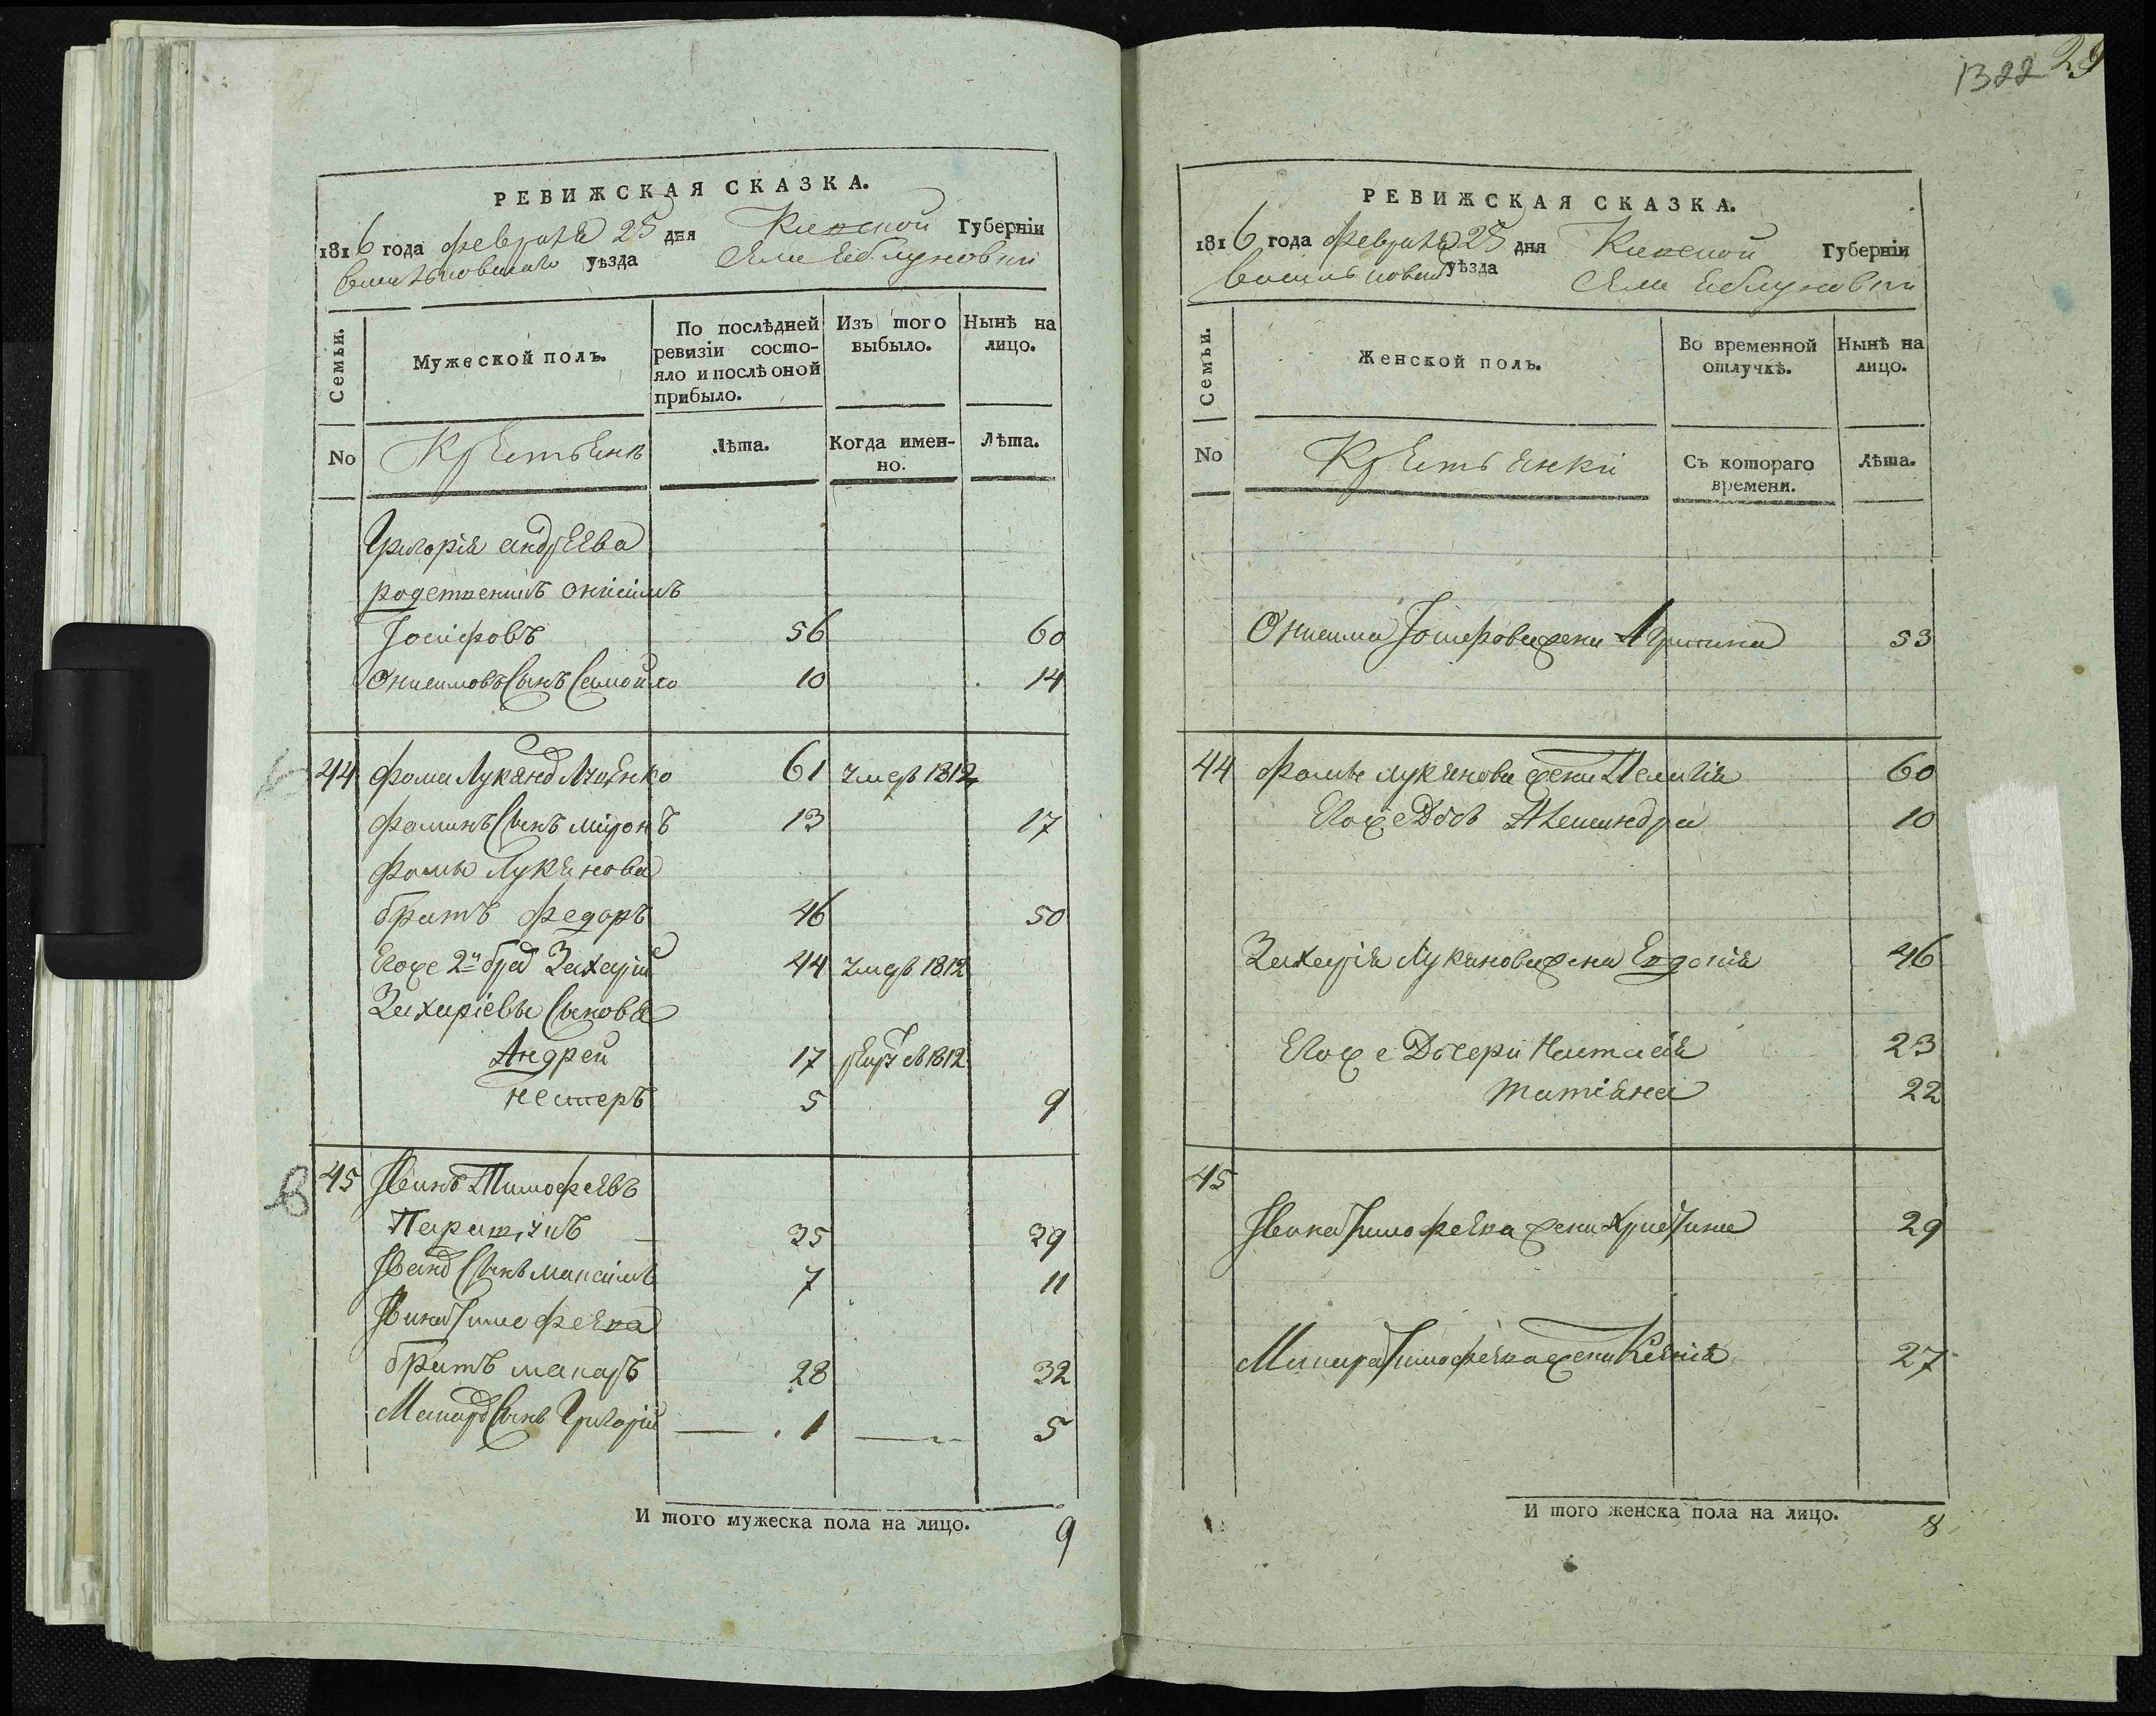 РЕВИЖСКАЯ СКАЗКА.
1816 года февраля 25 дня Киевской Губерніи
Василковскаго уѣзда Села Яблуновки
Семьи.
Мужеской полъ.
По послѣдней ревизіи состояло и послѣ оной прибыло.
Изъ того выбыло.
Нынѣ на лицо.
No
Крестьянѣ
Лѣта.
Когда именно.
Лѣта.
Григорія андреева
родственикъ онисимъ
Іосифовъ 56 60
Онисимовъ Сынъ Самойло 10 14
44 фома Лукянов 61 умер 1812
фоминъ Сынъ миронъ 13 17
фомы Лукянова
братъ федоръ 46 50
Егоже 2й брат Захарій 44 умер 1812
Захаріевы Сыновя
Андрей 17 1812
нестеръ 5 9
45 Иванъ Тимофеевъ
25 29
Иванов Сынъ максимъ 7 11
Ивана Тимофеева
братъ макаръ 28 32
Макаров Сынъ Григорій 1 5
И того мужеска пола на лицо. 9
1322 29
РЕВИЖСКАЯ СКАЗКА.
1816 года февраля 25 дня Киевской Губерніи
Василковск уѣзда Села Яблуновки
Семьи.
Женской полъ.
Во временной отлучкѣ.
Нынѣ на лицо.
No
Крестьянки
Съ котораго времени.
Лѣта.
Онисима Іосифова жена 53
44 фомы лукянова жена Пелагія 60
Егоже Дочь Александра 10
Захарія Лукянова жена Евдокія 46
Егоже Дочери Настасія 23
татіяна 22
45
Ивана Тимофеева жена Христина 29
Макара Тимофеева жена Ксенія 27
И того женска пола на лицо. 8